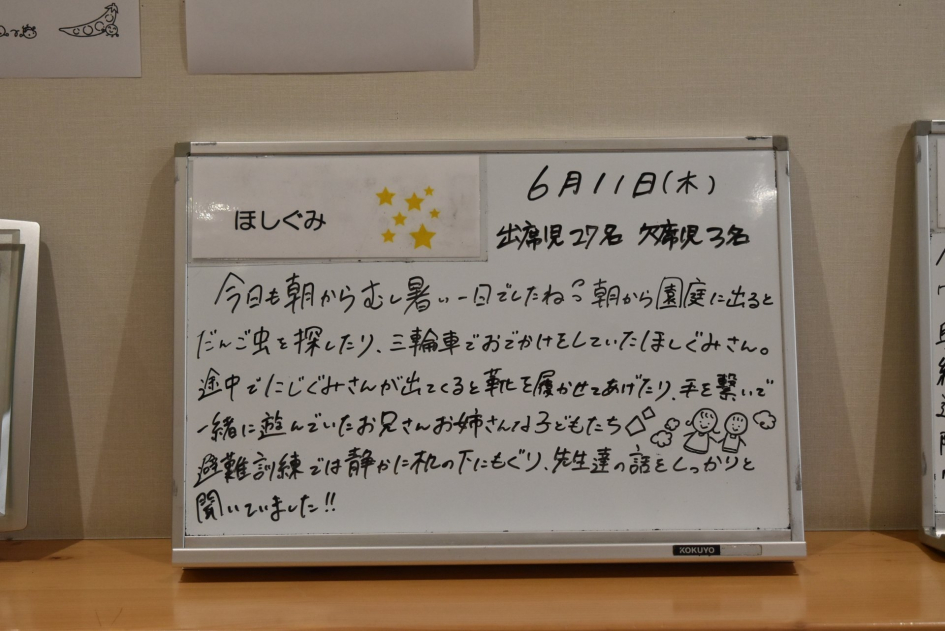 ほしぐみ
6月11日(木)
出席児27名 欠席児3名
今日も朝からむし暑い一日でしたね 朝から園庭に出ると
だんご虫を探したり、三輪車でおでかけをしていたほしぐみさん。
途中でにじぐみさんが出てくると靴を履かせてあげたり、手を繋いで
一緒に遊んでいたお兄さんお姉さんな子どもたち
避難訓練では静かに机の下にもぐり、先生達の話をしっかりと
聞いていました!!
KOKUYO